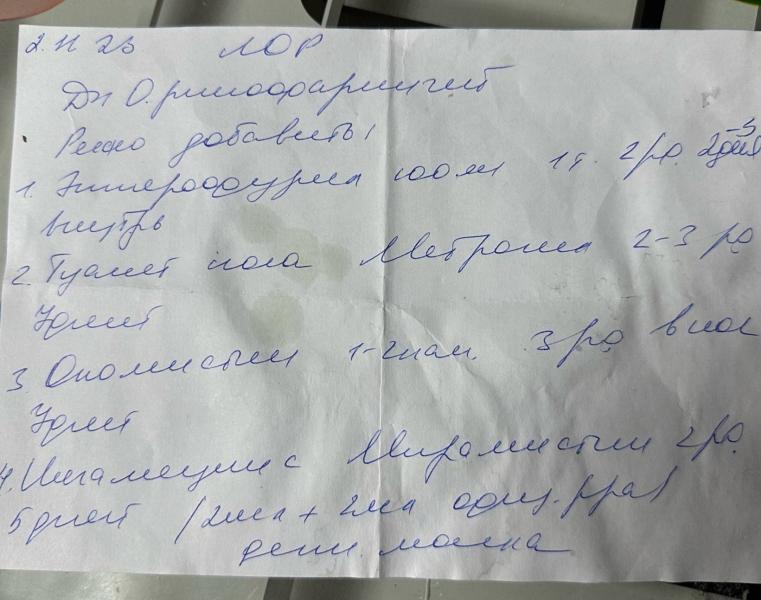 2. 11 23 ЛОР
Дп О. ринофарингит
Реко добавить
1. Энтерофурил 100мл 1т. 2рд. 2дня
внутрь
2. Туалет носа 2-3 рд
7дней
3 Окомистин 1-2кап. 3рд в нос
7дней
4. Ингаляции с Мирамистин 2рд.
5 дней (2мл + 2мл физ. р-ра)
маска